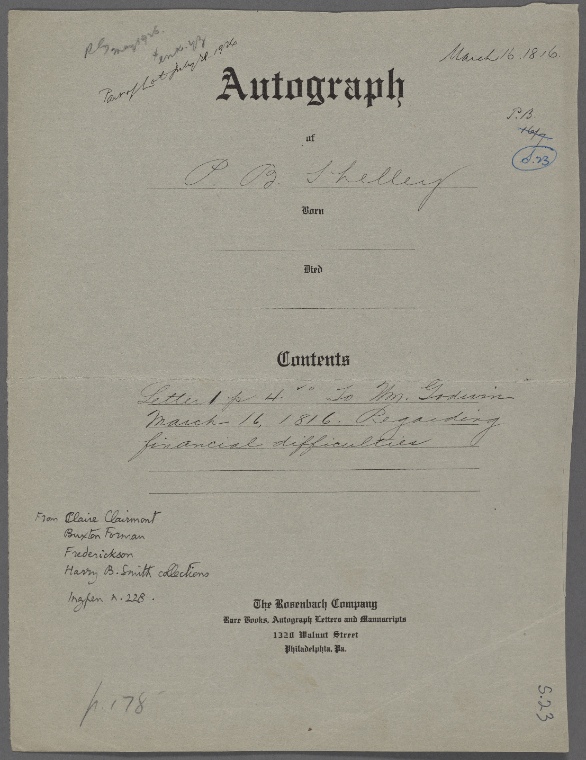 May 1926.
Part of Lot July 31 1926
March 16. 1816.
Autograph
P.B.
of
S.23
P. B. Shelley
Born
Died
Contents
Letter 1 p 4to To Wm. Godwin
March 16, 1816. Regarding
financial difficulties
From Claire Clairmont
Buxton Forman
Frederickson
Harry B. Smith collections
Ingpen n. 228.
The Rosenbach Company
Rare Books, Autograph Letters and Manuscripts
1320 Walnut Street
Philadelphia, Pa.
p. 178
S.23